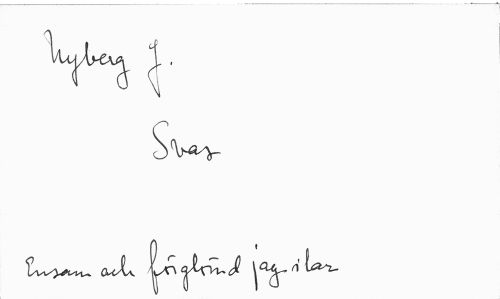 Nyberg J.
Svar
Ensam och förglömd jag ilar